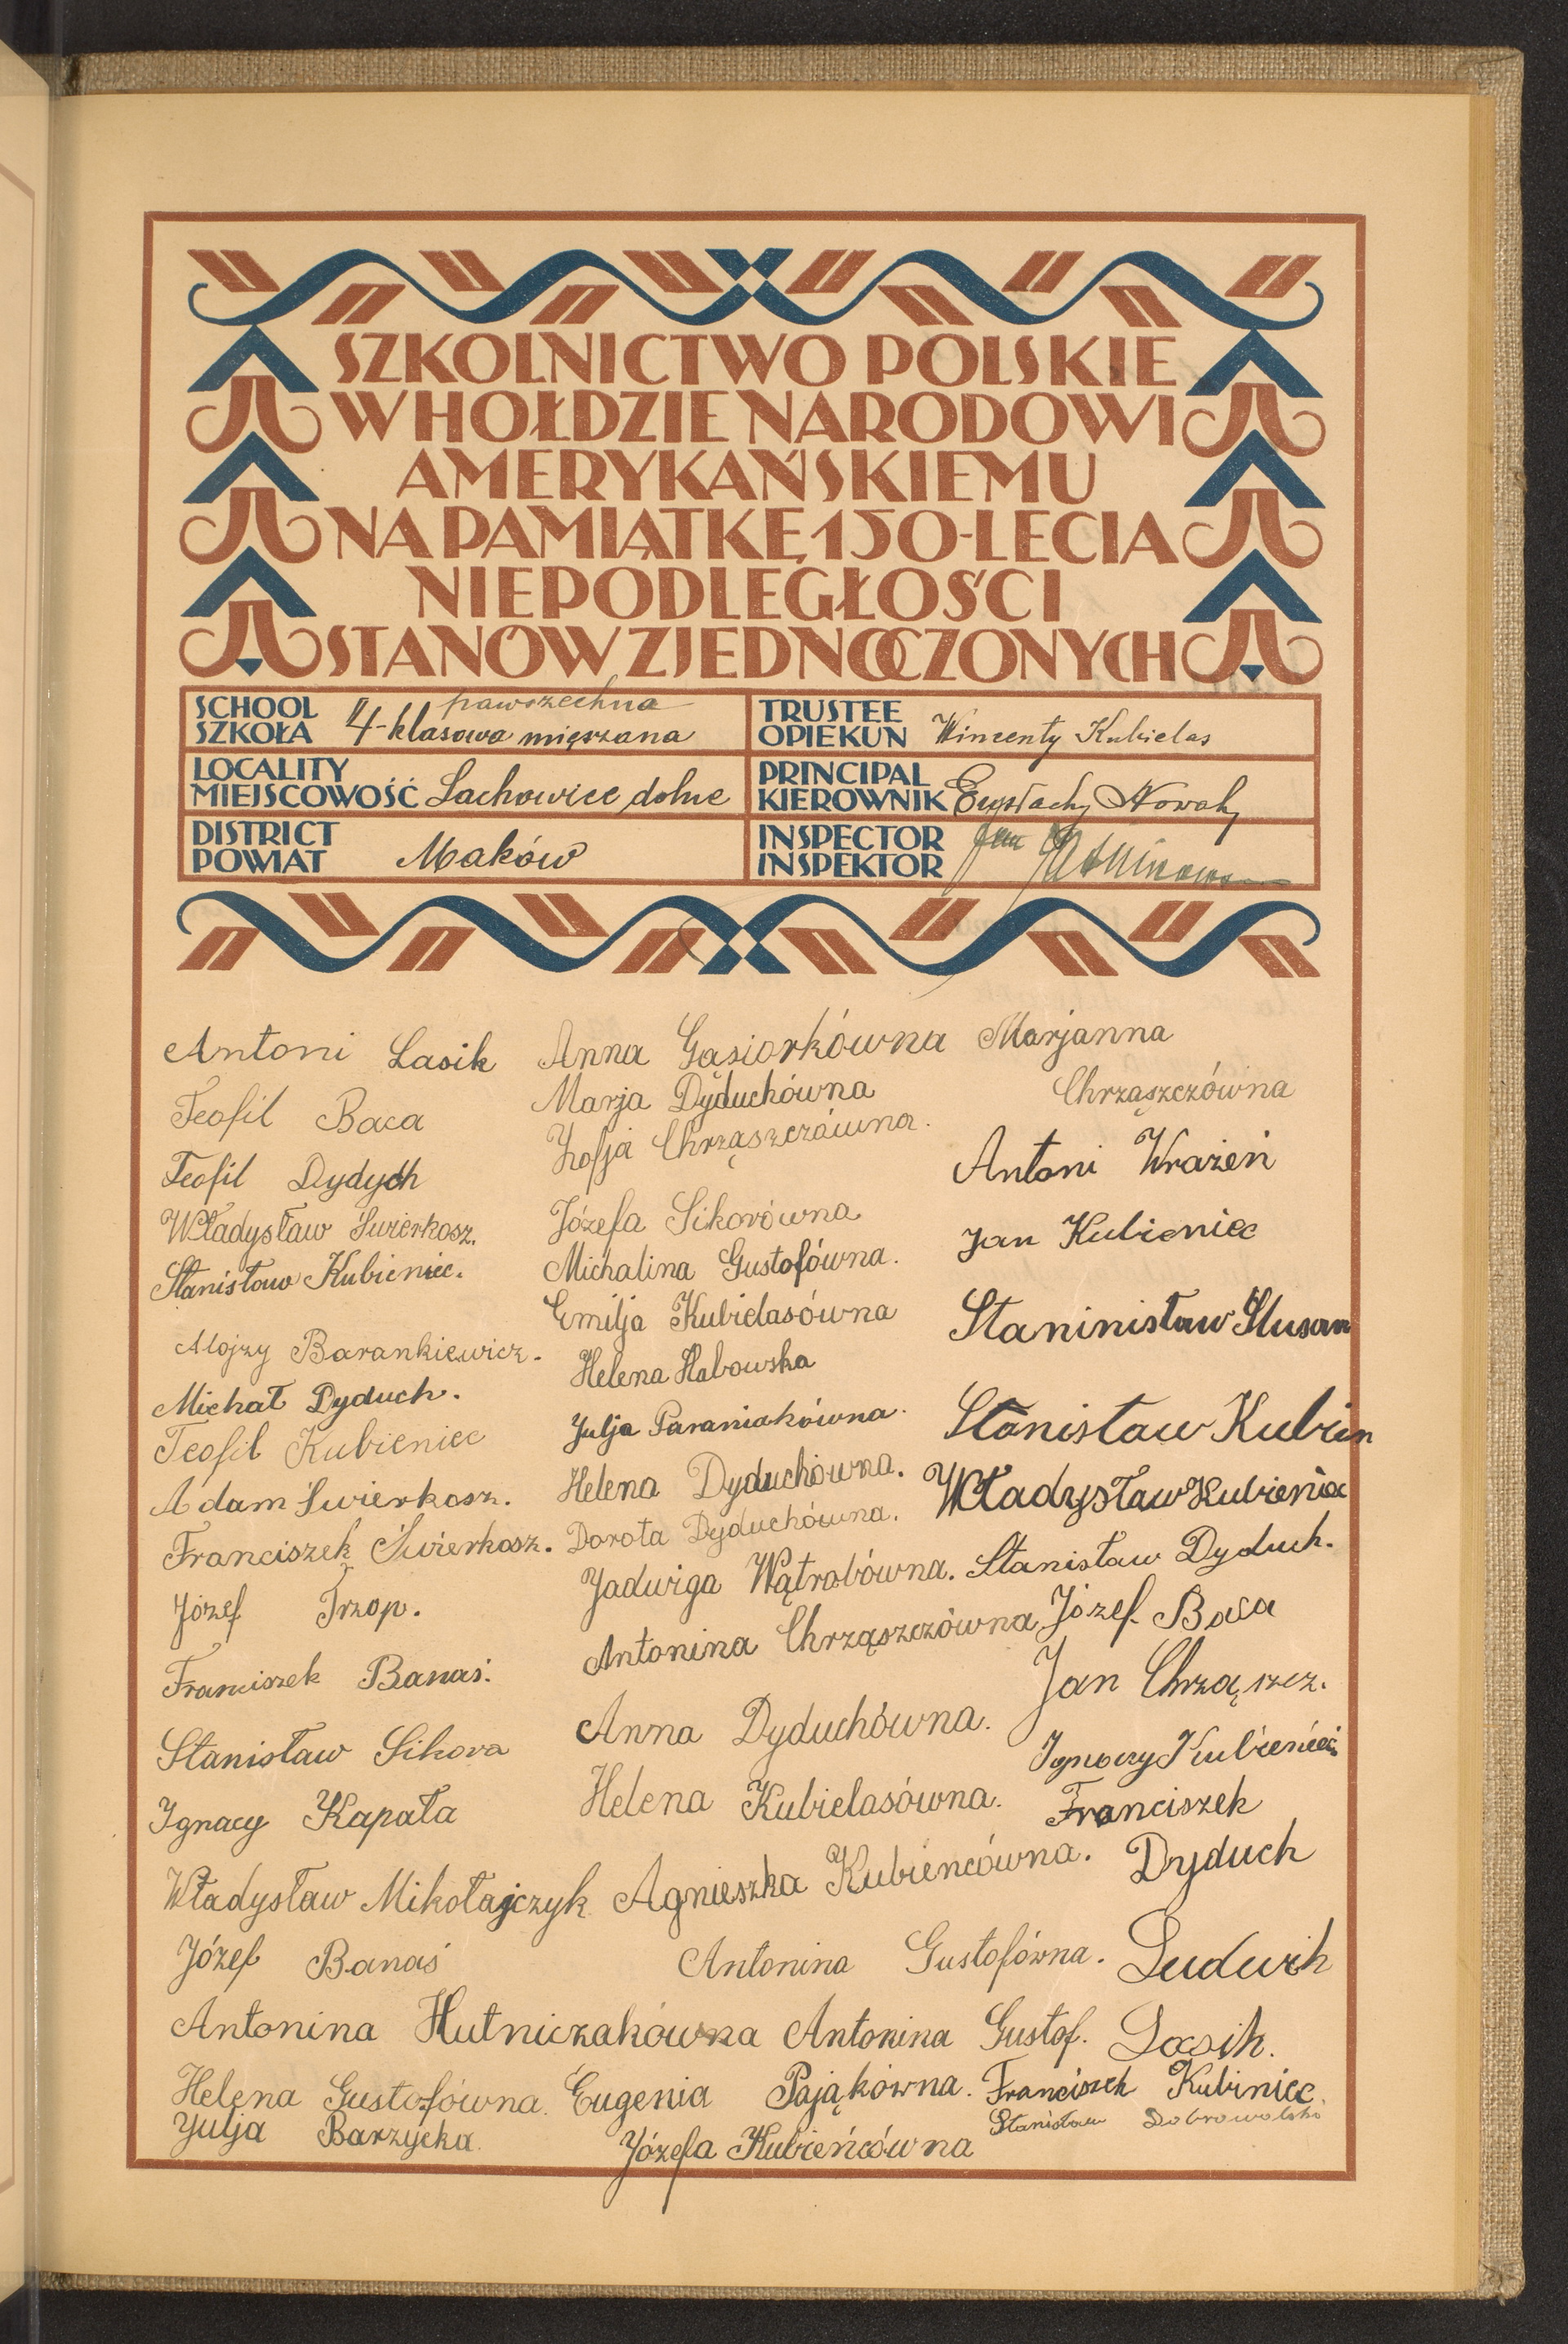 SZKOLNICTWO POLSKIE
W HOŁDZIE NARODOWI
AMERYKAŃSKIEMU
NA PAMIĄTKĘ 150-LECIA
NIEPODLEGŁOŚCI
STANÓW ZJEDNOCZONYCH
SCHOOL
SZKOŁA
powszechna
4-klasowa mięszana
TRUSTEE
OPIEKUN
Wincenty Kubielas
LOCALITY
MIEJSCOWOŚĆ
Lachowice dolne
PRINCIPAL
KIEROWNIK
Eustachy Nowak
DISTRICT
POWIAT
Maków
INSPECTOR
INSPEKTOR
Jan
Antoni Lasik
Teofil Baca
Teofil Dydych
Władysław Świerkosz.
Stanisław Kubieniec.
Alojzy Barankiewicz.
Michał Dyduch.
Teofil Kubieniec
Adam Świerkosz.
Franciszek Świerkosz.
Józef Trzop.
Franciszek Banaś.
Stanisław Sikora
Ignacy Kapała
Władysław Mikołajczyk
Józef Banaś
Antonina Hutniczakówna
Helena Gustofówna.
Julja Barzycka.
Anna Gąsiorkówna
Marja Dyduchówna
Zofja Chrząszczówna.
Józefa Sikorówna
Michalina Gustofówna.
Emilja Kubielasówna
Helena Habowska
Julja Paraniakówna.
Helena Dyduchówna.
Dorota Dyduchówna.
Jadwiga Wątrobówna.
Antonina Chrząszczówna
Anna Dyduchówna.
Helena Kubielasówna.
Agnieszka Kubiencówna.
Antonina Gustofówna.
Antonina Gustof.
Eugenia Pająkówna.
Józefa Kubieńcówna
Marjanna
Chrząszczówna
Antoni Wrażeń
Jan Kubieniec
Staninisław Slusar
Stanisław Kubin
Władysław Kubieniec
Stanisław Dyduch.
Józef Baca
Jan Chrząszcz.
Ignacy Kubieniec
Franciszek
Dyduch
Ludwik
Lasik.
Franciszek Kubiniec.
Stanisław Dobrowolski